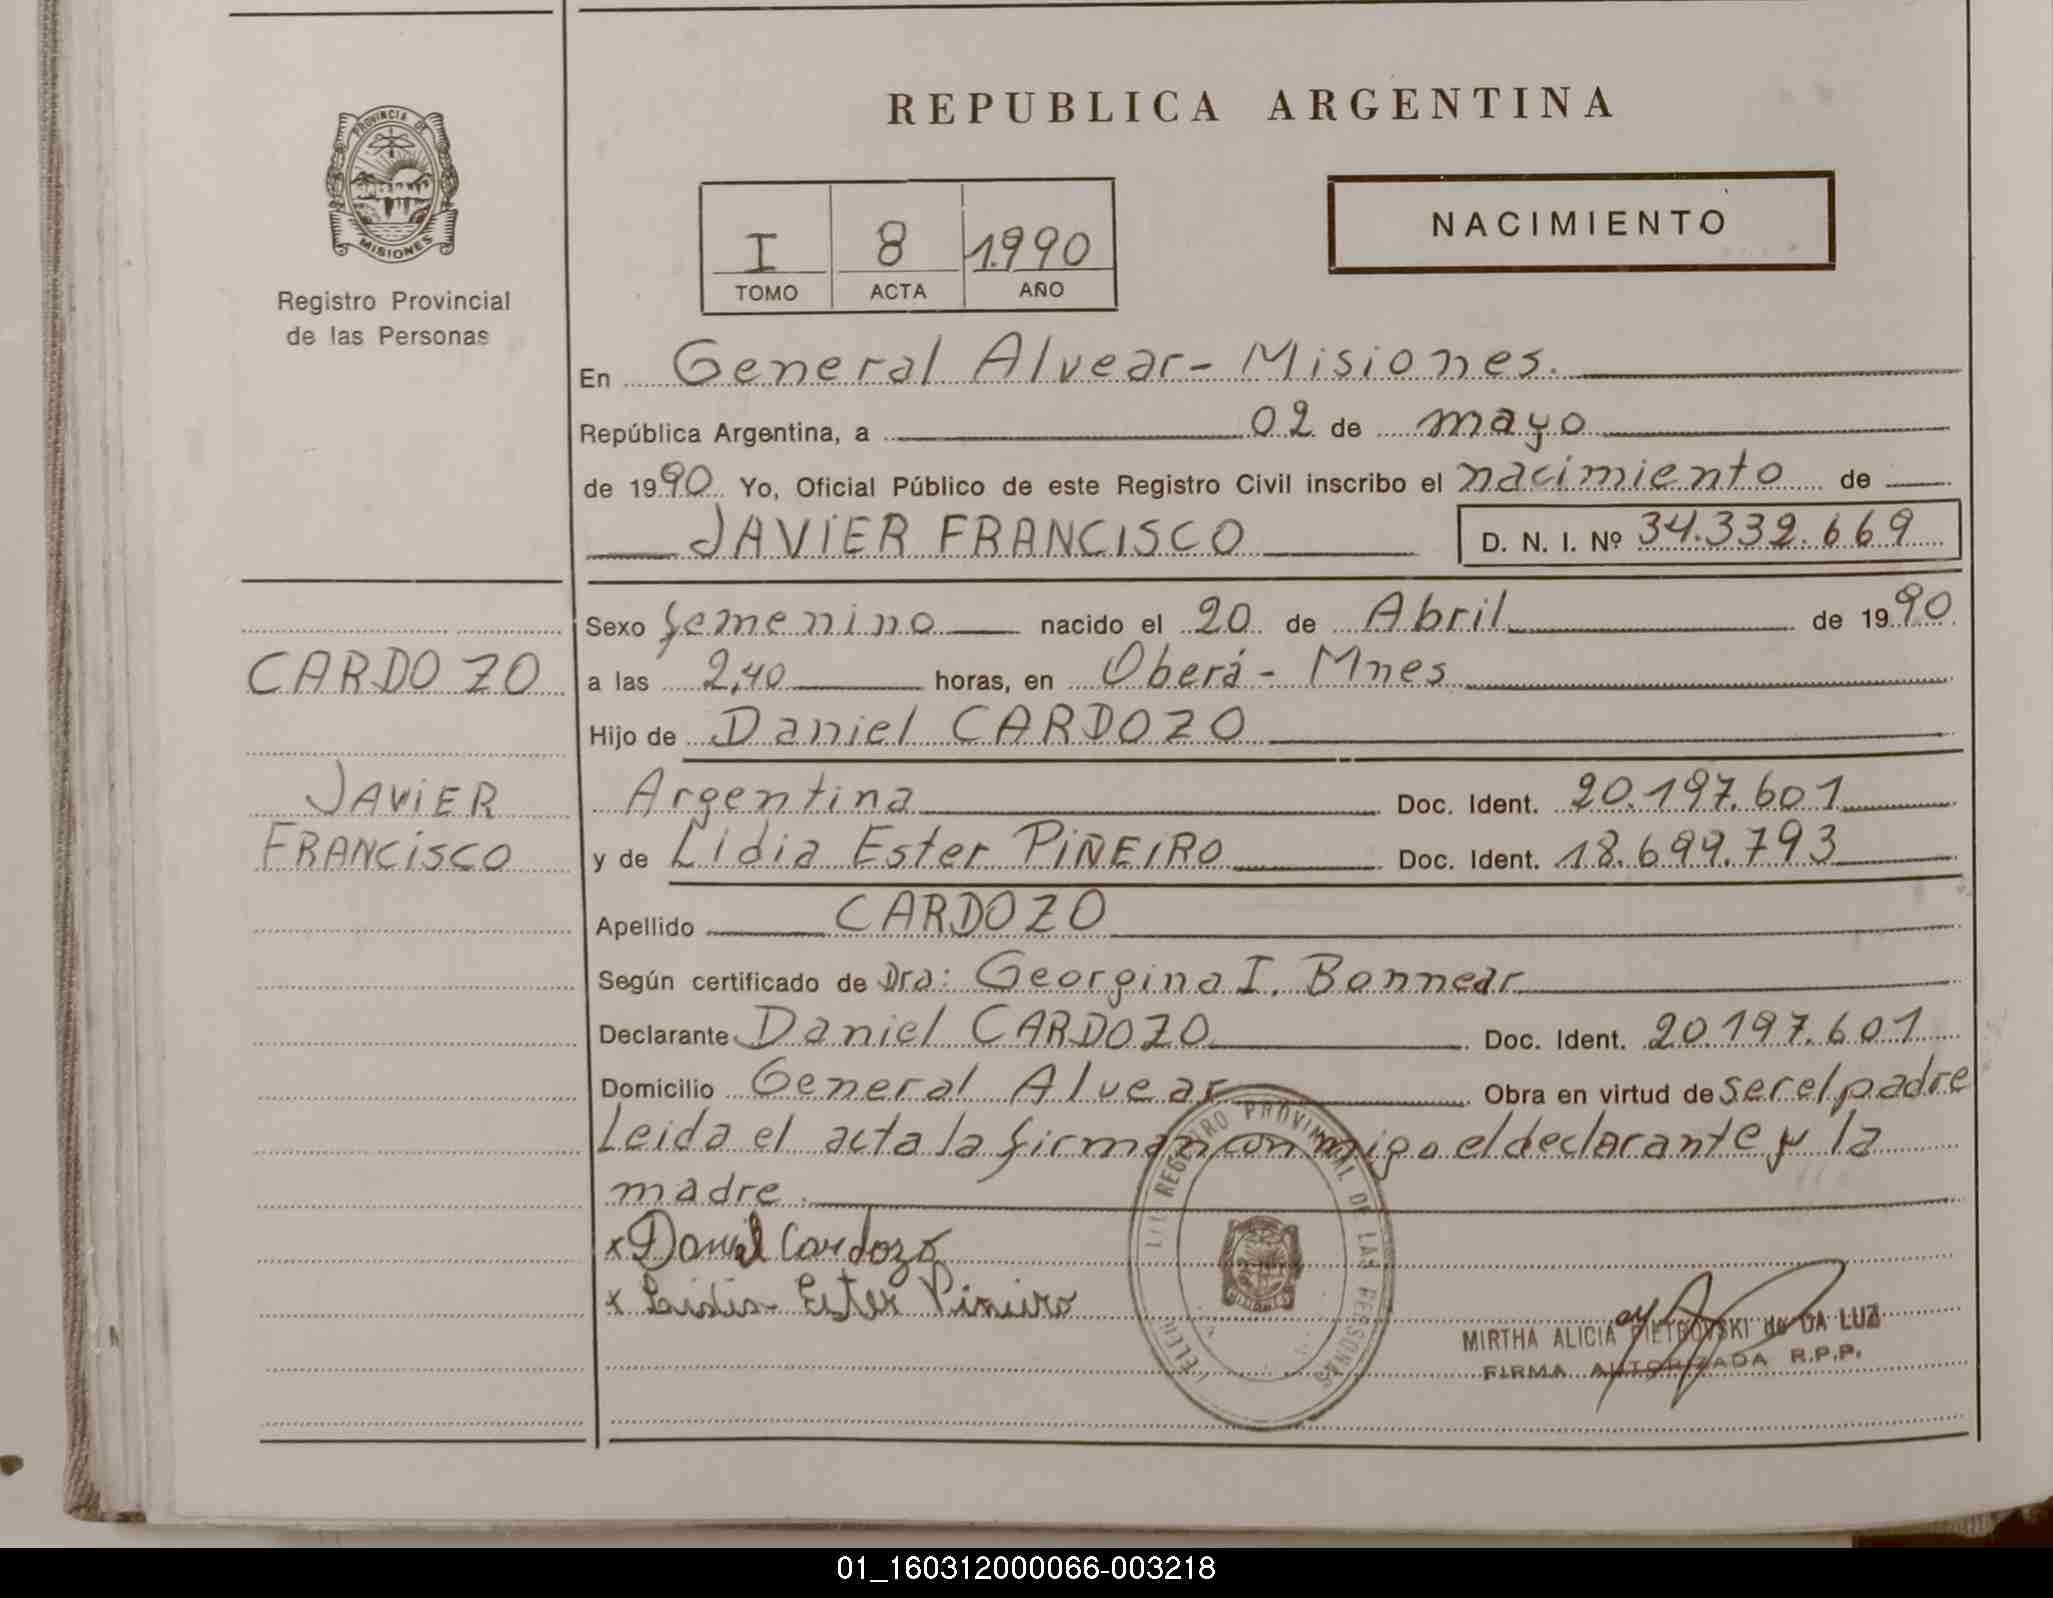 REPUBLICA ARGENTINA
PROVINCIA DE
MISIONES
Registro Provincial
de las Personas
NACIMIENTO
I 8 1.990
TOMO ACTA AÑO
En General Alvear - Misiones.
República Argentina, a 02 de mayo
de 1990 Yo, Oficial Público de este Registro Civil inscribo el nacimiento de
JAVIER FRANCISCO D. N. I. Nº 34.332.669
Sexo femenino nacido el 20 de Abril de 1990
CARDOZO
a las 2,40 horas, en Oberá - Mnes
Hijo de Daniel CARDOZO
JAVIER
FRANCISCO
Argentina Doc. Ident. 20.197.601
y de Lidia Ester PIÑEIRO Doc. Ident. 18.699.793
Apellido CARDOZO
Según certificado de Dra: Georgina I. Bonnear
Declarante Daniel CARDOZO Doc. Ident. 20.197.601
Domicilio General Alvear Obra en virtud de ser el padre
Leida el acta la firman conmigo el declarante y la
madre.
x Daniel Cardozo
x Lidia Ester Pineiro
REGISTRO PROVINCIAL DE LAS PERSONAS
MISIONES
MIRTHA ALICIA PIETROVSKI de DA LUZ
FIRMA AUTORIZADA R.P.P.
01_160312000066-003218